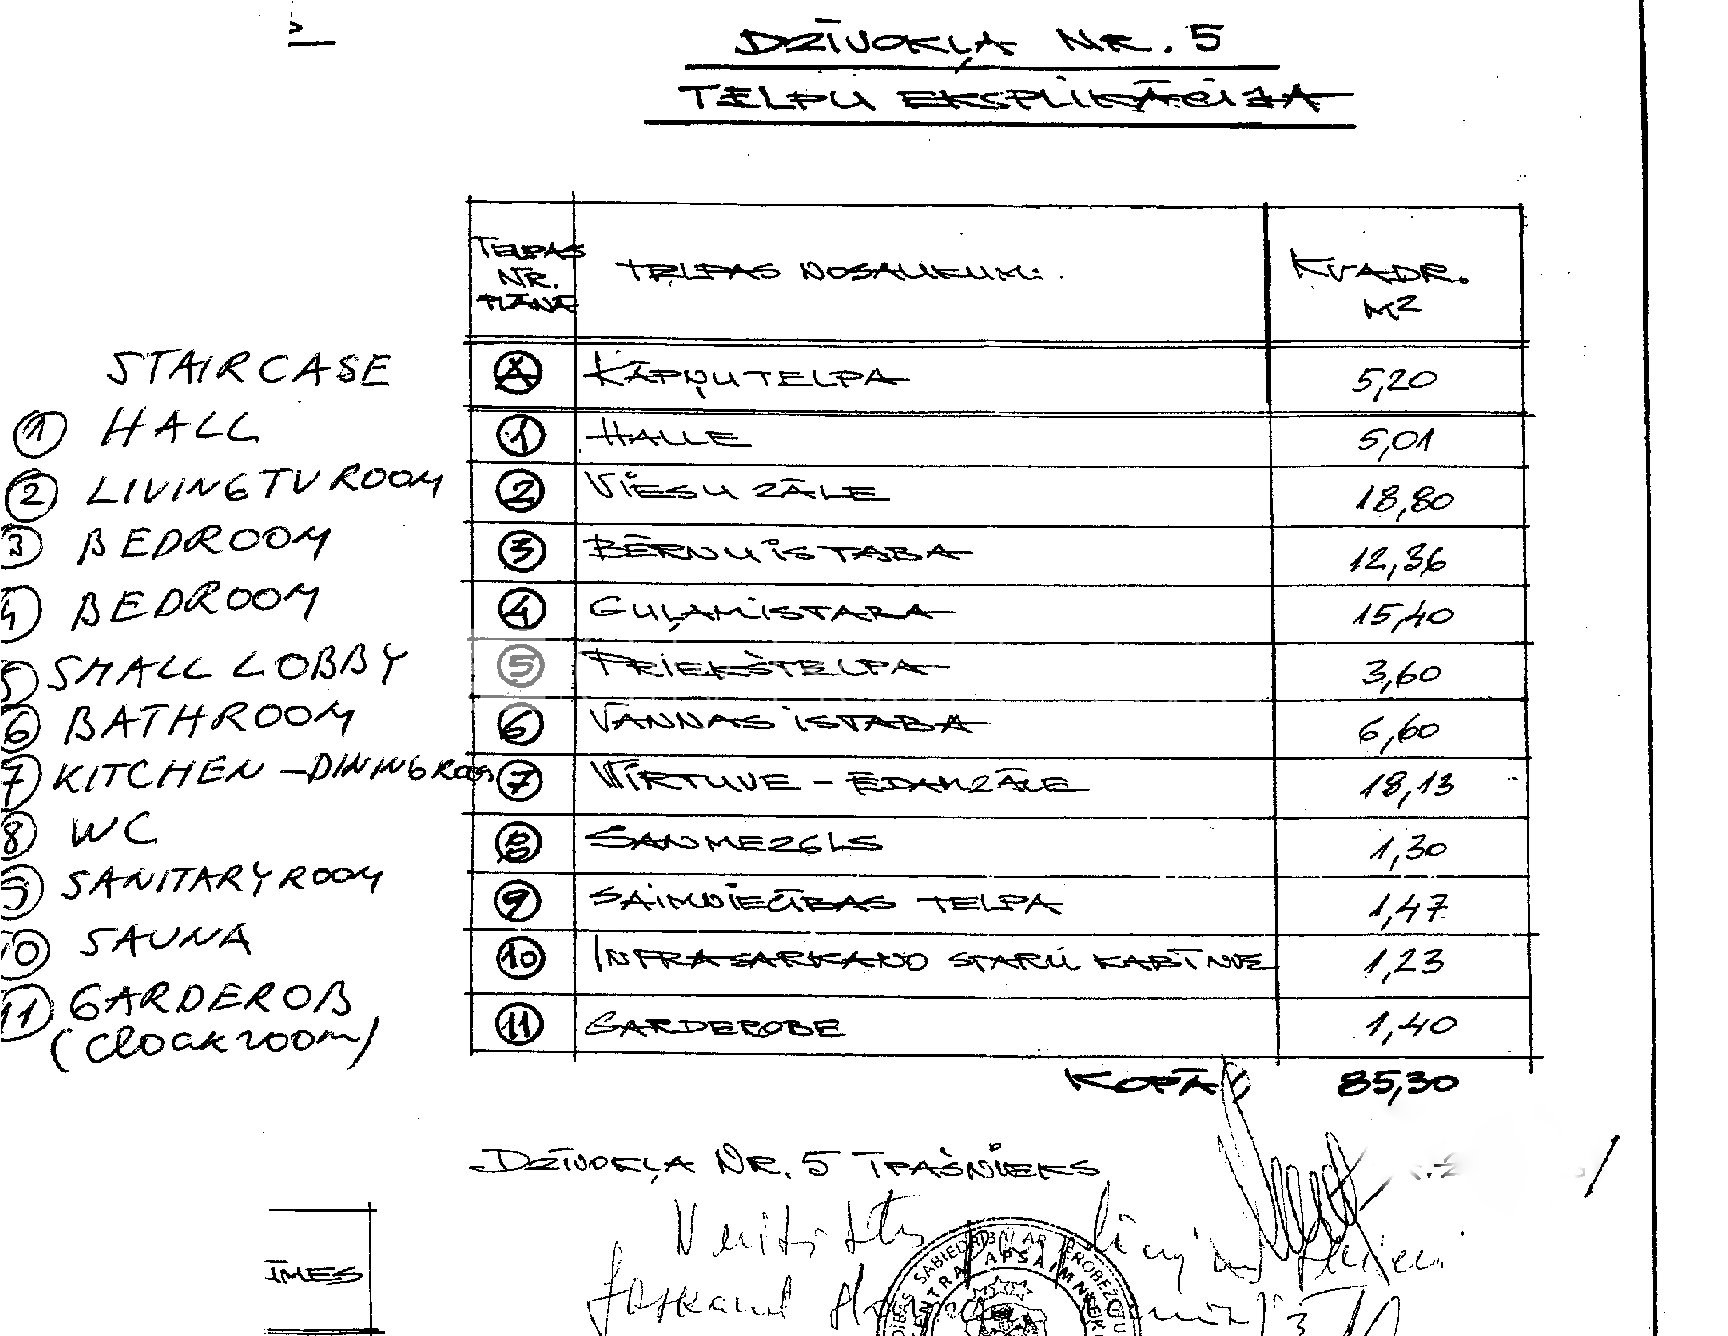 DZĪVOKĻA NR. 5
TELPU EKSPLIKĀCIJA
TELPAS NR. PLĀNĀ TELPAS NOSAUKUMI. KVADR. M2
STAIRCASE
A KĀPŅU TELPA 5,20
1 HALL 1 HALLE 5,01
2 LIVING TV ROOM 2 VIESU ZĀLE 18,80
3 BEDROOM 3 BĒRNU ISTABA 12,36
4 BEDROOM 4 GUĻAMISTABA 15,40
5 SMALL LOBBY 5 PRIEKŠTELPA 3,60
6 BATHROOM 6 VANNAS ISTABA 6,60
7 KITCHEN – DINING ROOM 7 VIRTUVE – ĒDAMZĀLE 18,13
8 WC 8 SANMEZGLS 1,30
9 SANITARY ROOM 9 SAIMNIECĪBAS TELPA 1,47
10 SAUNA 10 INFRASARKANO STARU KABĪNE 1,23
11 GARDEROB 11 GARDEROBE 1,40
(Cloakroom)
KOPĀ 85,30
DZĪVOKĻA NR. 5 ĪPAŠNIEKS
ĪMES
SABIEDRĪBA AR IEROBEŽOTU
APSAIMNIEKO